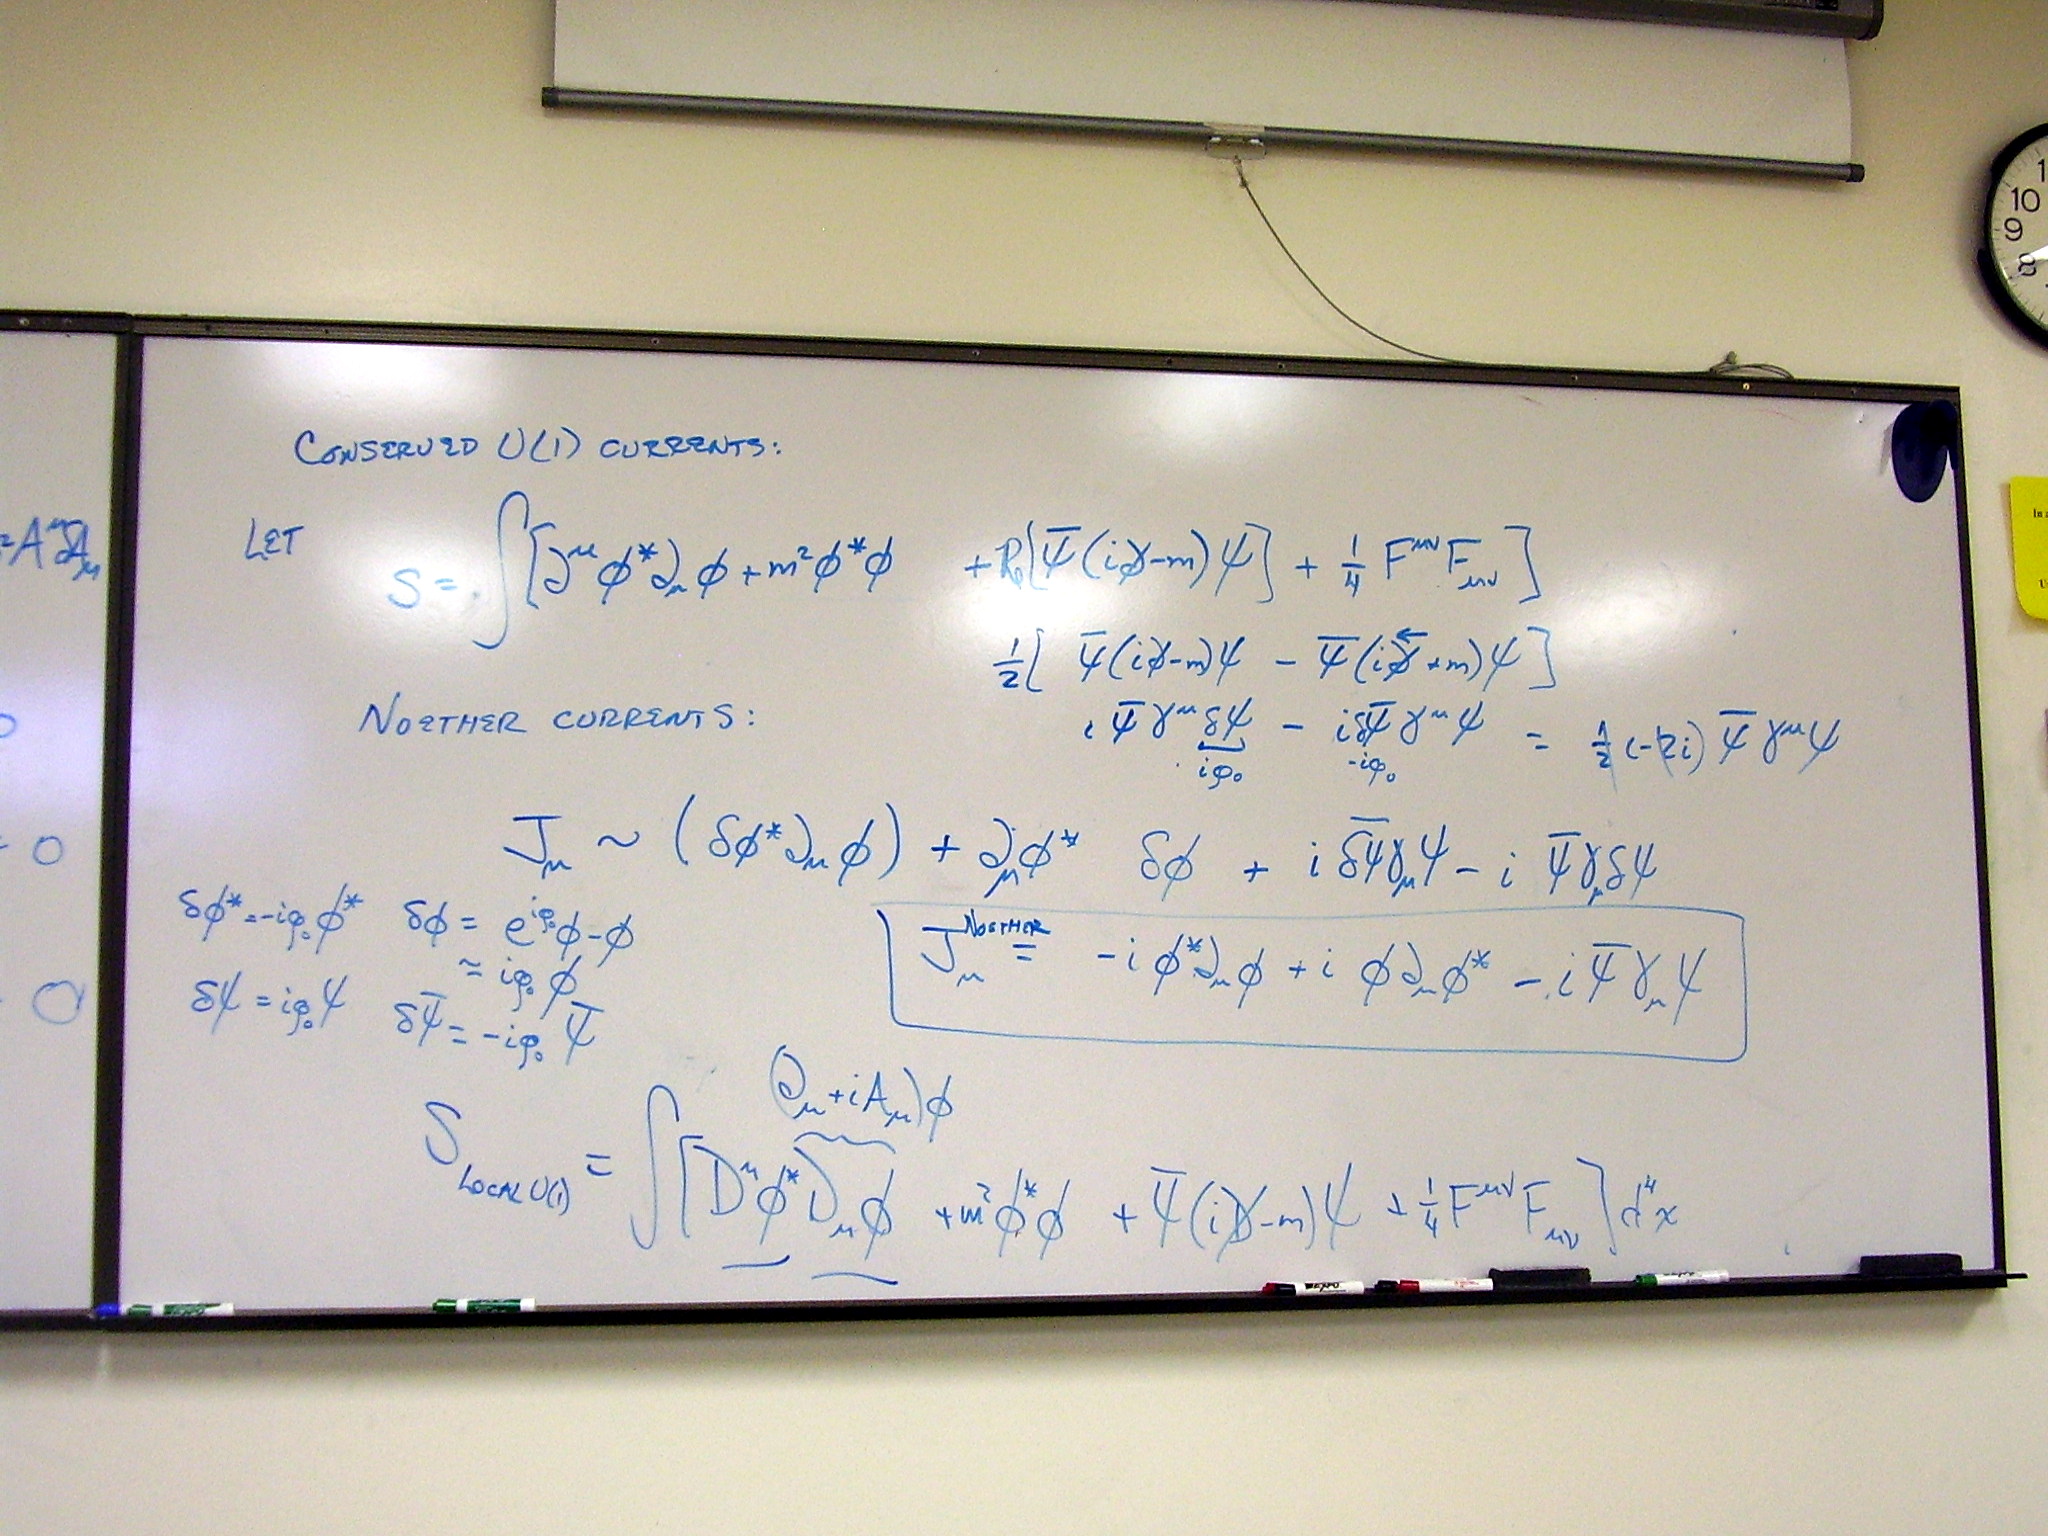 CONSERVED U(1) CURRENTS:
LET S = ∫[∂^μ φ* ∂_μ φ + m² φ*φ + Re[ψ̄(i∂̸ - m)ψ] + 1/4 F^{μν} F_{μν}]
1/2[ψ̄(i∂̸ - m)ψ - ψ̄(i∂̸← + m)ψ]
NOETHER CURRENTS:
i ψ̄ γ^μ δψ - i δψ̄ γ^μ ψ = 1/2 (-2i) ψ̄ γ^μ ψ
iφ₀ -iφ₀
J_μ ~ (δφ* ∂_μ φ) + ∂_μ φ* δφ + i δψ̄ γ_μ ψ - i ψ̄ γ_μ δψ
δφ* = -iφ₀ φ* δφ = e^{iφ₀} φ - φ
≈ iφ₀ φ
δψ = iφ₀ ψ δψ̄ = -iφ₀ ψ̄
J_μ^{NOETHER} = -i φ* ∂_μ φ + i φ ∂_μ φ* - i ψ̄ γ_μ ψ
(∂_μ + iA_μ)φ
S_{LOCAL U(1)} = ∫[D^μ φ* D_μ φ + m² φ*φ + ψ̄(iD̸ - m)ψ + 1/4 F^{μν} F_{μν}] d⁴x
= 0
10
9
8
EXPO
In a